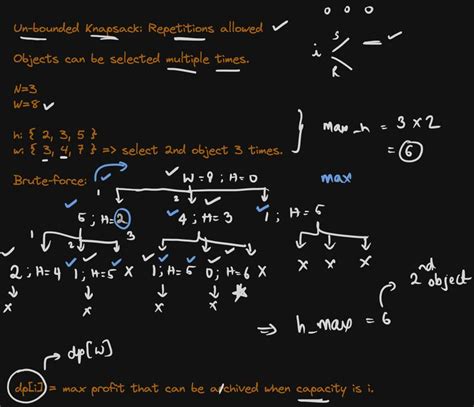 Un-bounded Knapsack: Repetitions allowed
Objects can be selected multiple times.
o o o
i
S
R
N=3
W=8
h: { 2, 3, 5 }
w: { 3, 4, 7 } => select 2nd object 3 times.
max_h = 3 x 2
= 6
Brute-force:
W=8 ; H=0
max
1
2
5 ; H=2
4 ; H=3
1 ; H=5
1
2
3
2 ; H=4
1 ; H=5
X
1 ; H=5
0 ; H=6
X
X
X
X
X
X
X
2nd object
=> h_max = 6
dp[W]
dp[i] = max profit that can be archived when capacity is i.